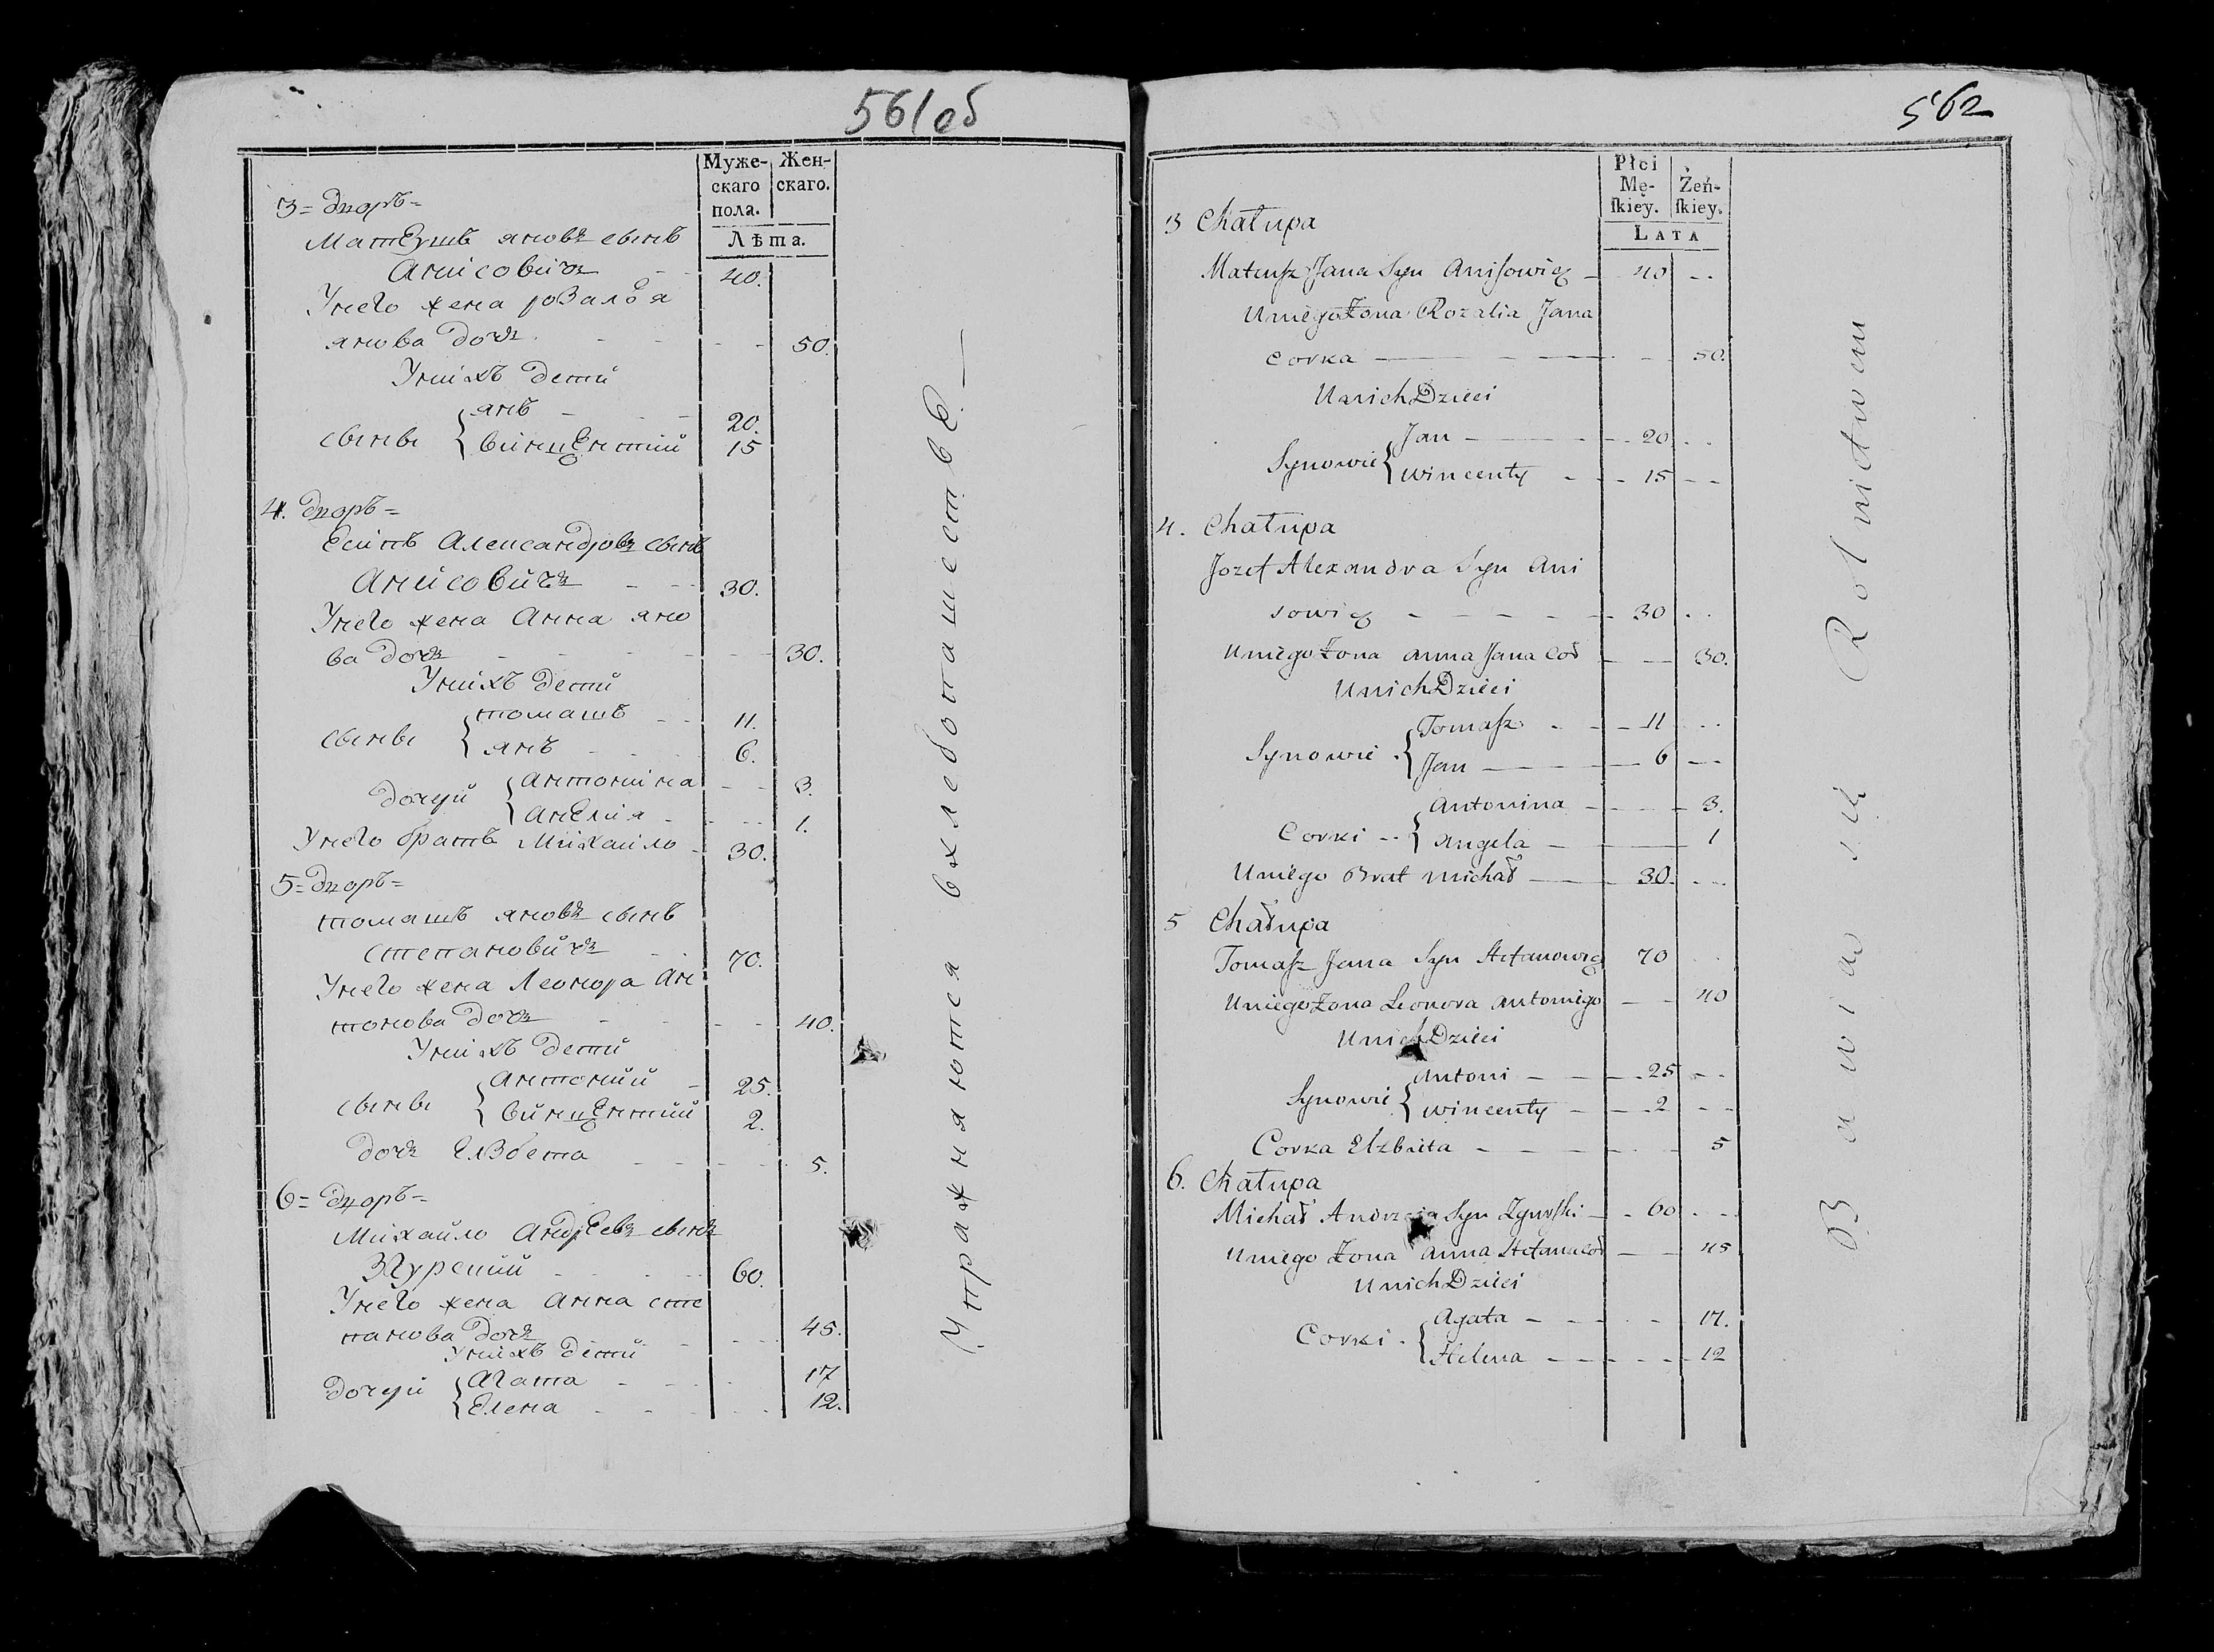 561об
Муже-
скаго
пола.
Жен-
скаго.
Лѣта.
3 = дворъ =
Матеушъ яновъ сынъ
Анисовичъ - - 40.
Унего жена розалья
янова дочъ - - - - 50.
Унихъ дети
сыны { янъ - - - 20.
винцентий 15
4. дворъ =
Есипъ Александровъ сынъ
Анисовичъ - - 30.
Унего жена Анна яно
ва дочъ - - - - 30.
Унихъ дети
сыны { томашъ - - 11.
янъ - - - 6.
дочери { антонина - - 3.
анеля - - - 1.
Унего братъ Михайло - 30.
5 = дворъ =
томашъ яновъ сынъ
степановичъ - - 70.
Унего жена Леонора Ан
тонова дочъ - - - - 40.
Унихъ дети
сыны { Антоний - 25.
винцентий 2.
дочъ Елзбета - - - - 5.
6 = дворъ =
Михайло Андреевъ сынъ
Згурский - - - 60.
Унего жена Анна сте
панова дочъ - - - 45.
Унихъ дети
дочери { Агата - - - 17
Елена - - - - 12.
Упражняются вхлебопашестве. —
562
Płci
Mę-
ſkiey.
Żeń-
ſkiey.
LATA
3 Chałupa
Mateuſz Jana Syn Aniſowicz - 40 - -
Uniego Żona Rozalia Jana
Corka - - - - 50.
Unich Dzieci
Synowie { Jan - - - 20 - -
Wincenty - - - 15 - -
4. Chałupa
Jozef Alexandra Syn Ani
sowicz - - - - - 30 - -
Uniego Żona Anna Jana Coř - - 30.
Unich Dzieci
Synowie { Tomaſz - - - 11 - -
Jan - - - 6 - -
Corki - - { Antonina - - - - 3.
Angela - - - 1
Uniego Brat Michał - - 30. - -
5 Chałupa
Tomaſz Jana Syn Stefanowicz 70 - -
Uniego Żona Leonora Antoniego - - 40
Unich Dzieci
Synowie { Antoni - - - 25 - -
Wincenty - - - 2 - -
Corka Elzbieta - - - - - 5
6. Chałupa
Michał Andrzeja Syn Zgurſki - - 60 - -
Uniego Żona Anna Stefana Coř - - 45
Unich Dzieci
Corki - { Agata - - - - 17.
Helena - - - - 12
Bawią się Rolnictwem